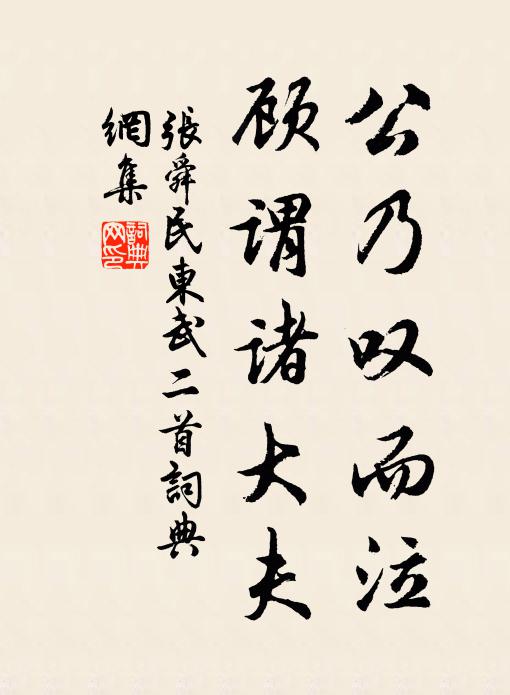 公乃叹而泣
顾谓诸大夫
張舜民東武二首詞典
網集
詞典
网印